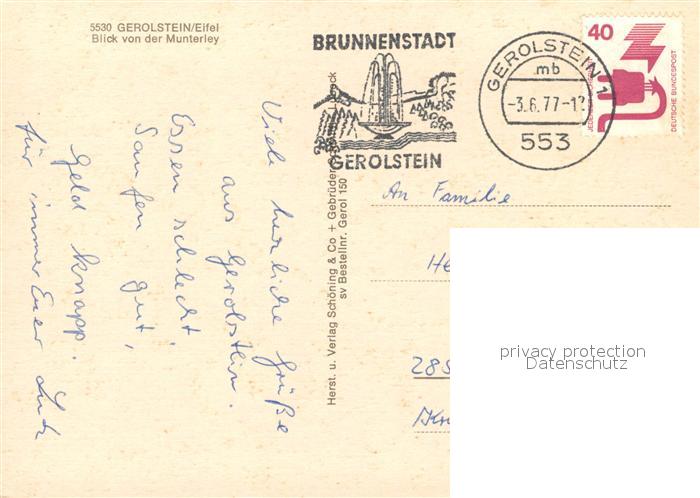 5530 GEROLSTEIN/Eifel
Blick von der Munterley
BRUNNENSTADT
GEROLSTEIN
GEROLSTEIN 1
mb
-3.6.77-1
553
40
DEUTSCHE BUNDESPOST
Viele herzliche Grüße
aus Gerolstein.
Essen schlecht,
Saufen gut,
Geld knapp.
für immer Euer
Herst. u. Verlag Schöning & Co + Gebrüder
sv Bestellnr. Gerol 150
An Familie
He
285
privacy protection
Datenschutz